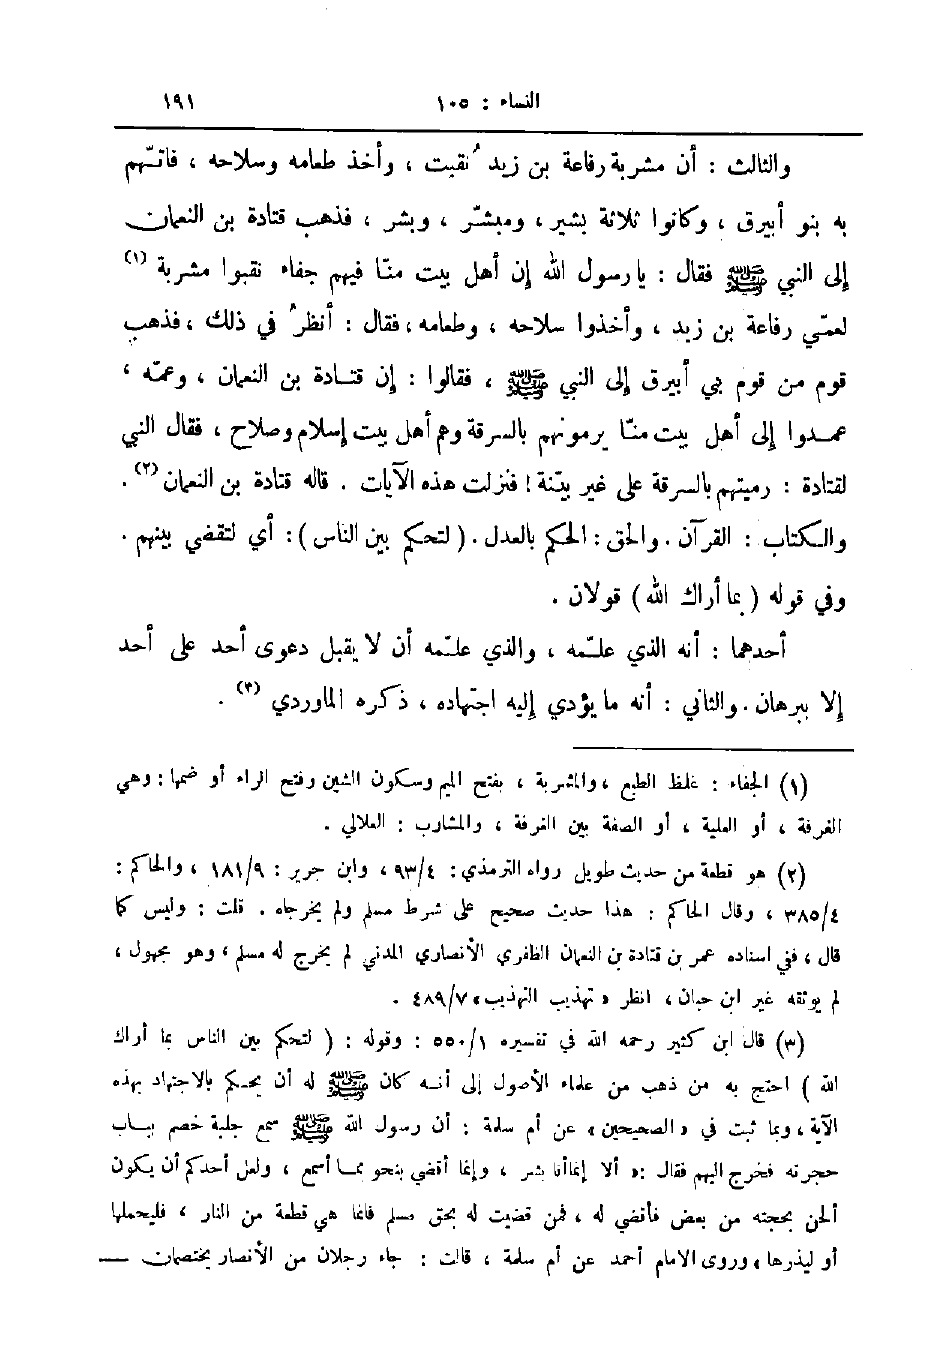 النساء : ١٠٥ ١٩١
والثالث : أن مشربة رفاعة بن زيد نُقبت ، وأخذ طعامه وسلاحه ، فاتّهم
به بنو أبيرق ، وكانوا ثلاثة بشير ، ومبشّر ، وبشر ، فذهب قتادة بن النعمان
إلى النبي ﷺ فقال : يا رسول الله إن أهل بيت منّا فيهم جفاء نقبوا مشربة (١)
لعمّي رفاعة بن زيد ، وأخذوا سلاحه ، وطعامه ، فقال : أنظرُ في ذلك ، فذهب
قوم من قوم بني أبيرق إلى النبي ﷺ ، فقالوا : إن قتادة بن النعمان ، وعمّه ،
عمدوا إلى أهل بيت منّا يرمونهم بالسرقة وهم أهل بيت إسلام وصلاح ، فقال النبي
لقتادة : رميتهم بالسرقة على غير بيّنة ! فنزلت هذه الآيات . قاله قتادة بن النعمان (٢) .
والكتاب : القرآن . والحق : الحكم بالعدل . ( لتحكم بين الناس ) : أي لتقضي بينهم .
وفي قوله ( بما أراك الله ) قولان .
أحدهما : أنه الذي علّمه ، والذي علّمه أن لا يقبل دعوى أحد على أحد
إلا ببرهان . والثاني : أنه ما يؤدي إليه اجتهاده ، ذكره الماوردي (٣) .
(١) الجفاء : غلظ الطبع ، والمشربة ، بفتح الميم وسكون الشين وفتح الراء أو ضمها : وهي
الغرفة ، أو العلية ، أو الصفة بين الغرفة ، والمشارب : العلالي .
(٢) هو قطعة من حديث طويل رواه الترمذي : ٩٣/٤ ، وابن جرير : ١٨١/٩ ، والحاكم :
٣٨٥/٤ ، وقال الحاكم : هذا حديث صحيح على شرط مسلم ولم يخرجاه . قلت : وليس كما
قال ، ففي اسناده عمر بن قتادة بن النعمان الظفري الأنصاري المدني لم يخرج له مسلم ، وهو مجهول ،
لم يوثقه غير ابن حبان ، انظر « تهذيب التهذيب » ٤٨٩/٧ .
(٣) قال ابن كثير رحمه الله في تفسيره ٥٥٠/١ : وقوله : ( لتحكم بين الناس بما أراك
الله ) احتج به من ذهب من علماء الأصول إلى أنه كان ﷺ له أن يحكم بالاجتهاد بهذه
الآية ، وبما ثبت في « الصحيحين » عن أم سلمة : أن رسول الله ﷺ سمع جلبة خصم بباب
حجرته فخرج اليهم فقال : « ألا إنما أنا بشر ، وإنما أقضي بنحو مما أسمع ، ولعل أحدكم أن يكون
ألحن بحجته من بعض فأقضي له ، فمن قضيت له بحق مسلم فانما هي قطعة من النار ، فليحملها
أو ليذرها » وروى الامام أحمد عن أم سلمة ، قالت : جاء رجلان من الأنصار يختصمان —